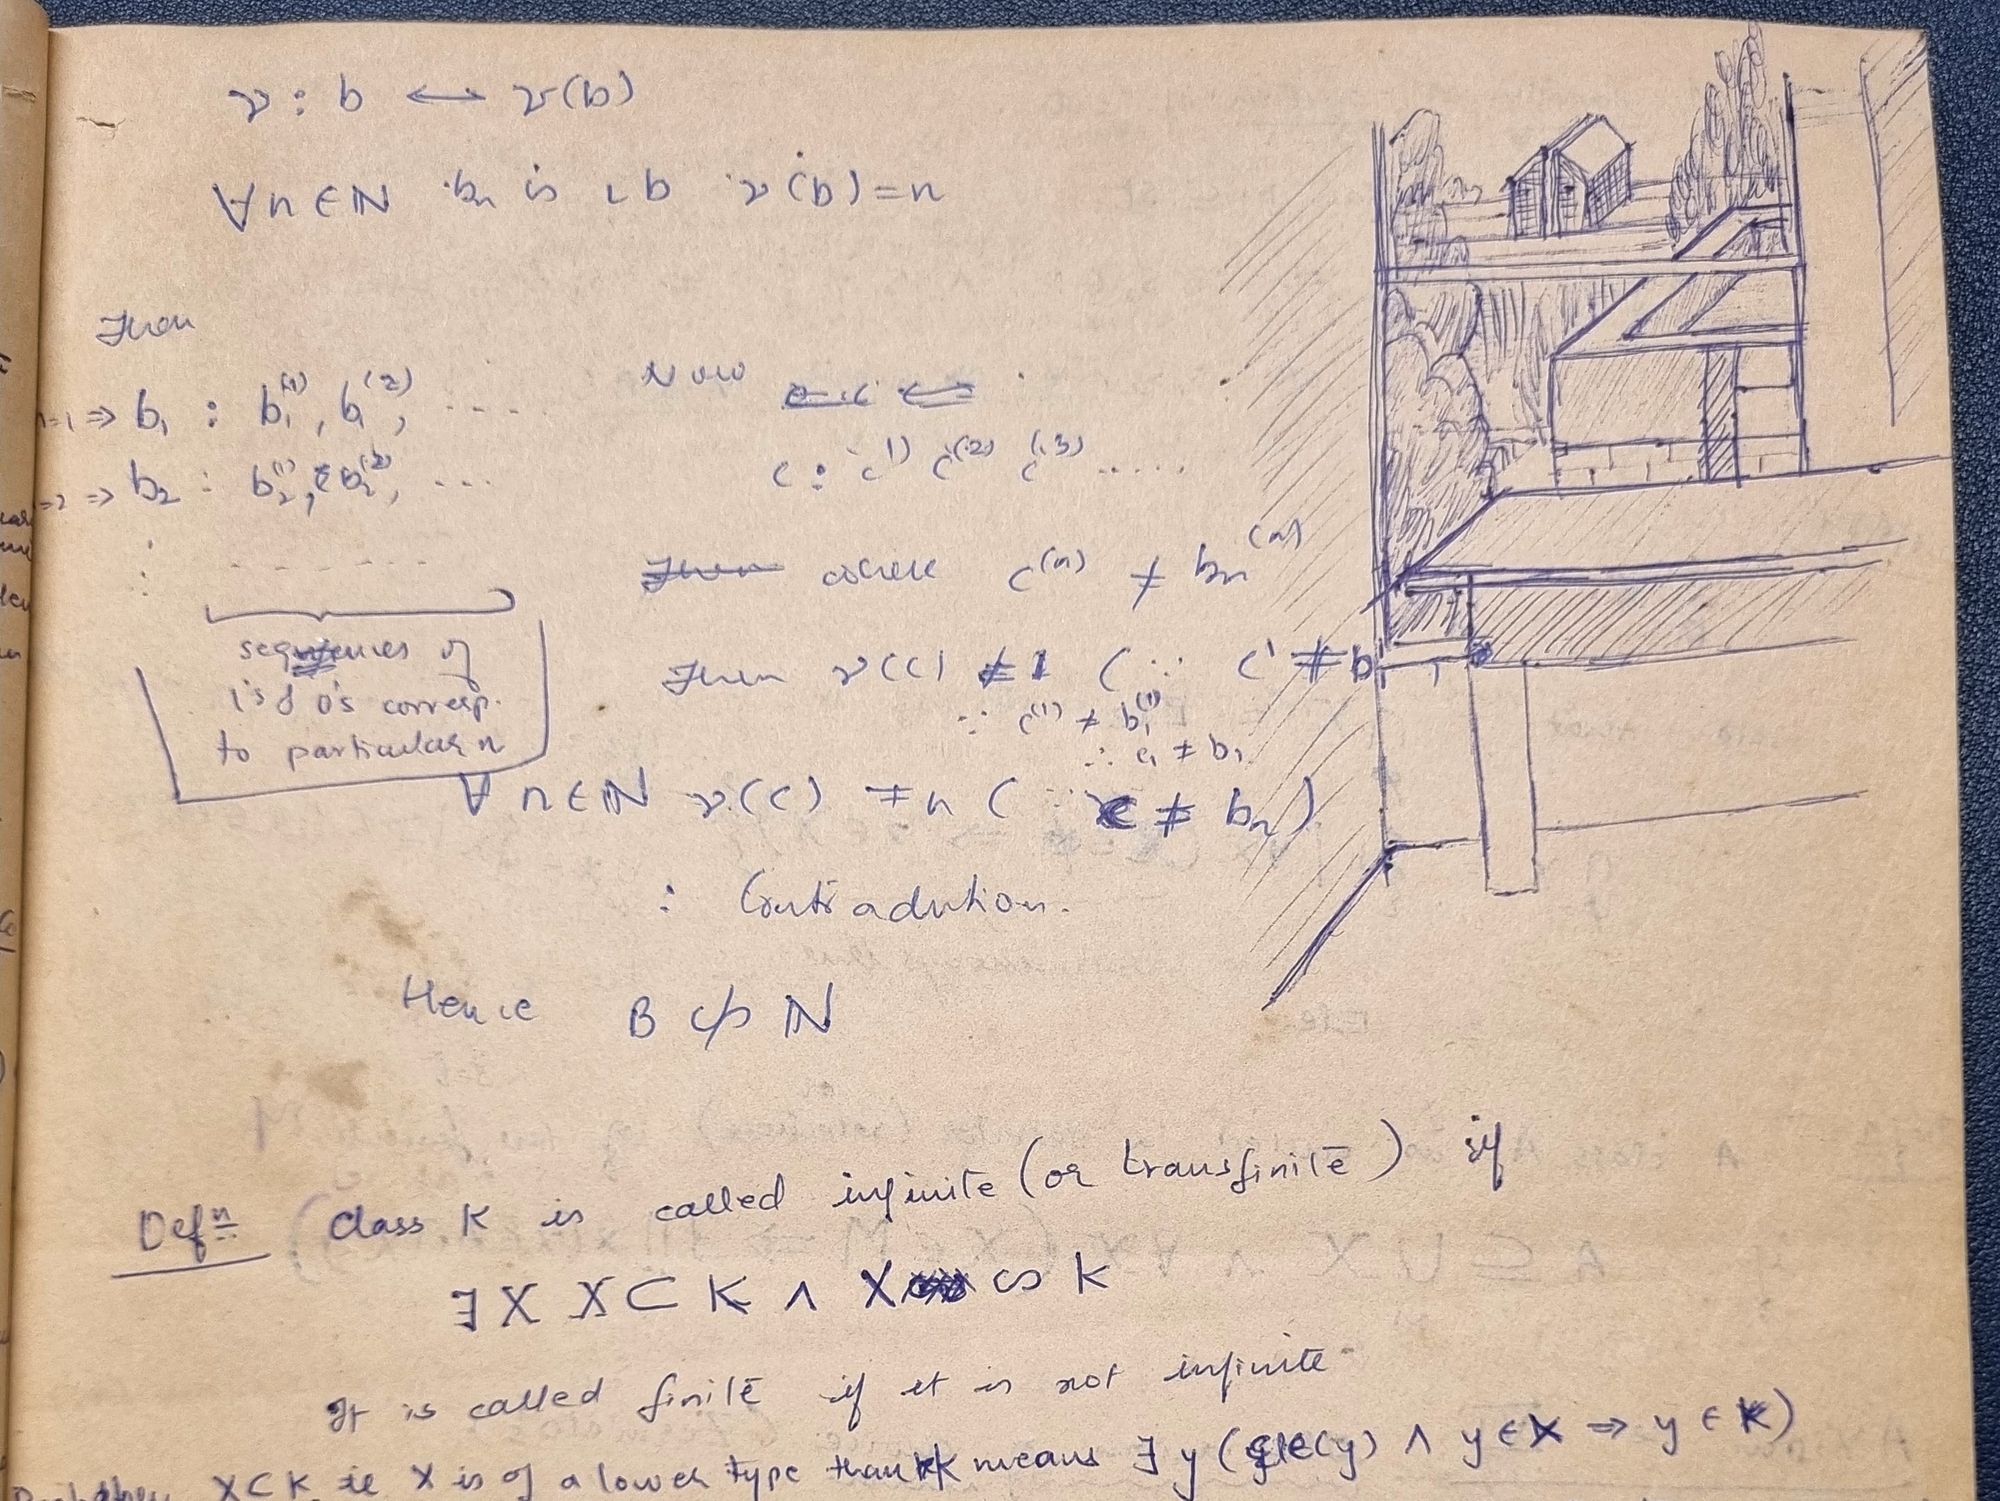 ν : b ⟷ ν(b)
∀n∈ℕ bₙ is ι b ν(b)=n
Then
n=1 ⇒ b₁ : b₁⁽¹⁾, b₁⁽²⁾, ....
=2 ⇒ b₂ : b₂⁽¹⁾, b₂⁽²⁾, ...
sequences of
1's & 0's corresp.
to particular n
Now
c : c⁽¹⁾ c⁽²⁾ c⁽³⁾ .....
where c⁽ⁿ⁾ ≠ bₙ⁽ⁿ⁾
Then ν(c) ≠ 1 (∵ c¹ ≠ b
∵ c⁽¹⁾ ≠ b₁⁽¹⁾
∴ c₁ ≠ b₁
∀ n∈ℕ ν(c) ≠ n (∵ c ≠ bₙ)
: Contradiction.
Hence B ≁ ℕ
Defⁿ Class K is called infinite (or transfinite) if
∃X X⊂K ∧ X ∽ K
It is called finite if it is not infinite
X⊂K ie X is of a lower type than K means ∃y (ele(y) ∧ y∈X ⇒ y∈K)